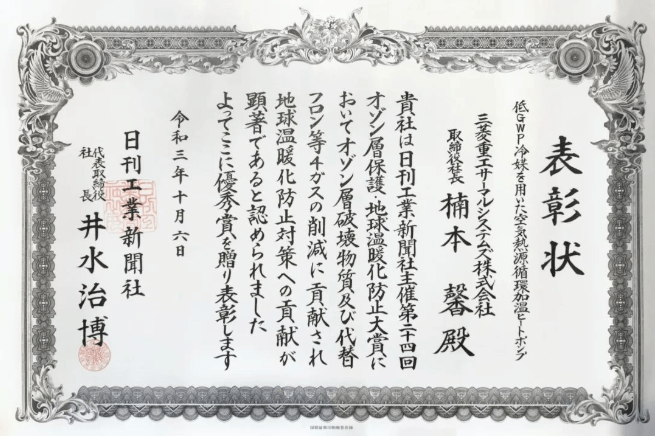 表彰状
低GWP冷媒を用いた空気熱源循環加温ヒートポンプ
三菱重工サーマルシステムズ株式会社
取締役社長 楠本 馨 殿
貴社は日刊工業新聞社主催第二十四回
オゾン層保護・地球温暖化防止大賞に
おいてオゾン層破壊物質及び代替
フロン等4ガスの削減に貢献され
地球温暖化防止対策への貢献が
顕著であると認められました
よってここに優秀賞を贈り表彰します
令和三年十月六日
日刊工業新聞社
代表取締役社長 井水治博